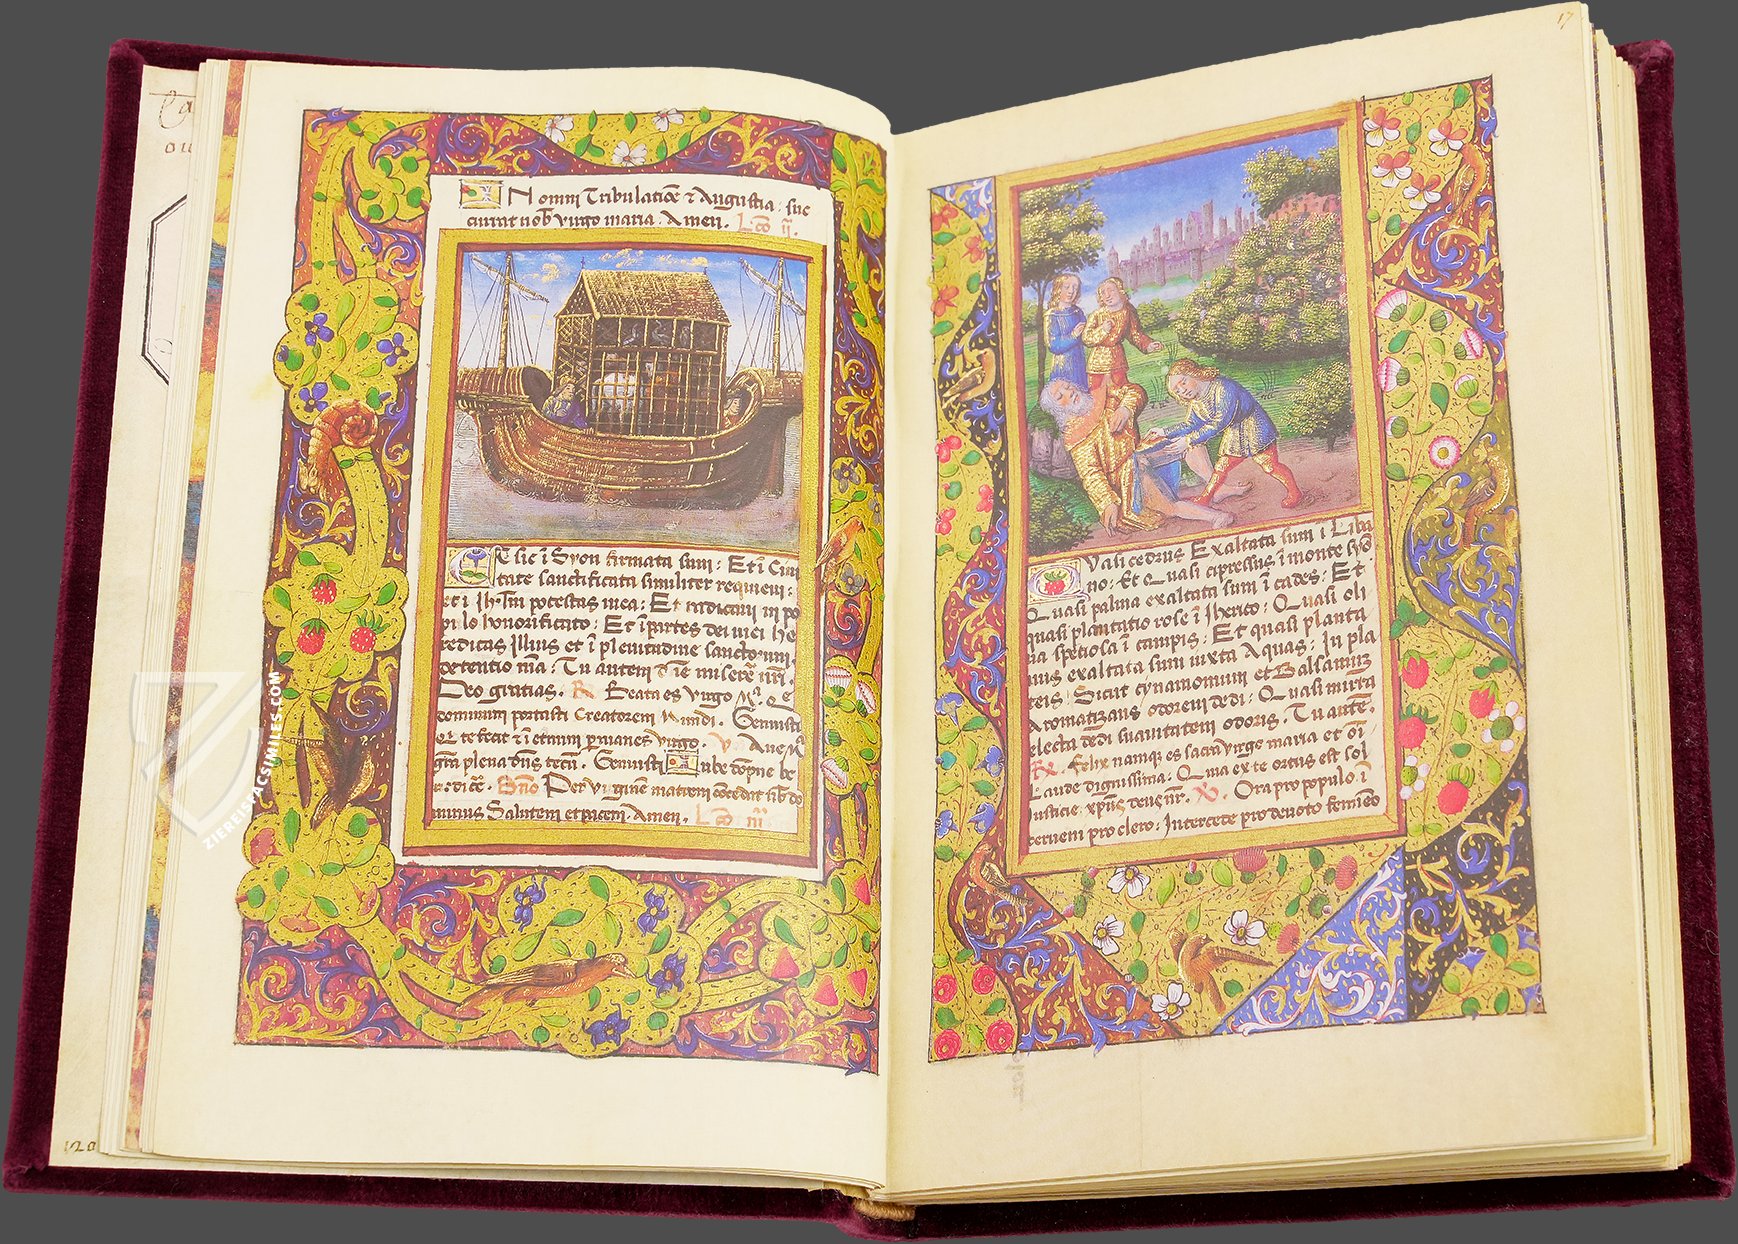 IN omni Tribulatiōe & Angustia: suc
currat nob̄ virgo maria. Amen. L̄cō ij.
ET sic ī Syon firmata sum: Et ī Civi
tate sanctificata similiter requievi:
et i Jh̄rl̄m potestas mea: Et radicavi in po
pulo honorificato: Et ī partes dei mei he
reditas Illius et ī plenitudine sanctorum.
detentio m̄a. Tu autem d̄n̄e miserēre nr̄i.
Deo gratias. R̄ Beata es virgo M̄a. q̄
dominum portasti Creatorem Mundi. Genuisti
q̄ te fecit & ī eternum p̄manes virgo. V̄ Ave M̄
grā plena dn̄s tecū. Genuisti Jube dōpne be
nedicē. Bn̄o Per virginē matrem cōcedat nb̄ do
minus Salutem et pacem. Amen. L̄cō iij
17
Quasi cedrus Exaltata sum i Liba
no: Et Quasi cipressus ī monte syō
Quasi palma exaltata sum ī cades: Et
quasi plantatio rose ī Jherico: Quasi oli
va speciosa ī campis: Et quasi planta
nus exaltata sum iuxta Aquas: In pla
teis: Sicut cynamomum et Balsamum
Aromatizans odorem dedi: Quasi mirra
electa dedi suavitatem odoris. Tu autē.
R̄. Felix namque es sacra virgo maria et oī
Laude dignissima: Q̄ma ex te ortus est sol
iusticie. xp̄us deus nr̄. V̄. Ora pro populo. ī
terveni pro clero: Intercede pro devoto femineo
120
ZIEREISFACSIMILES.COM